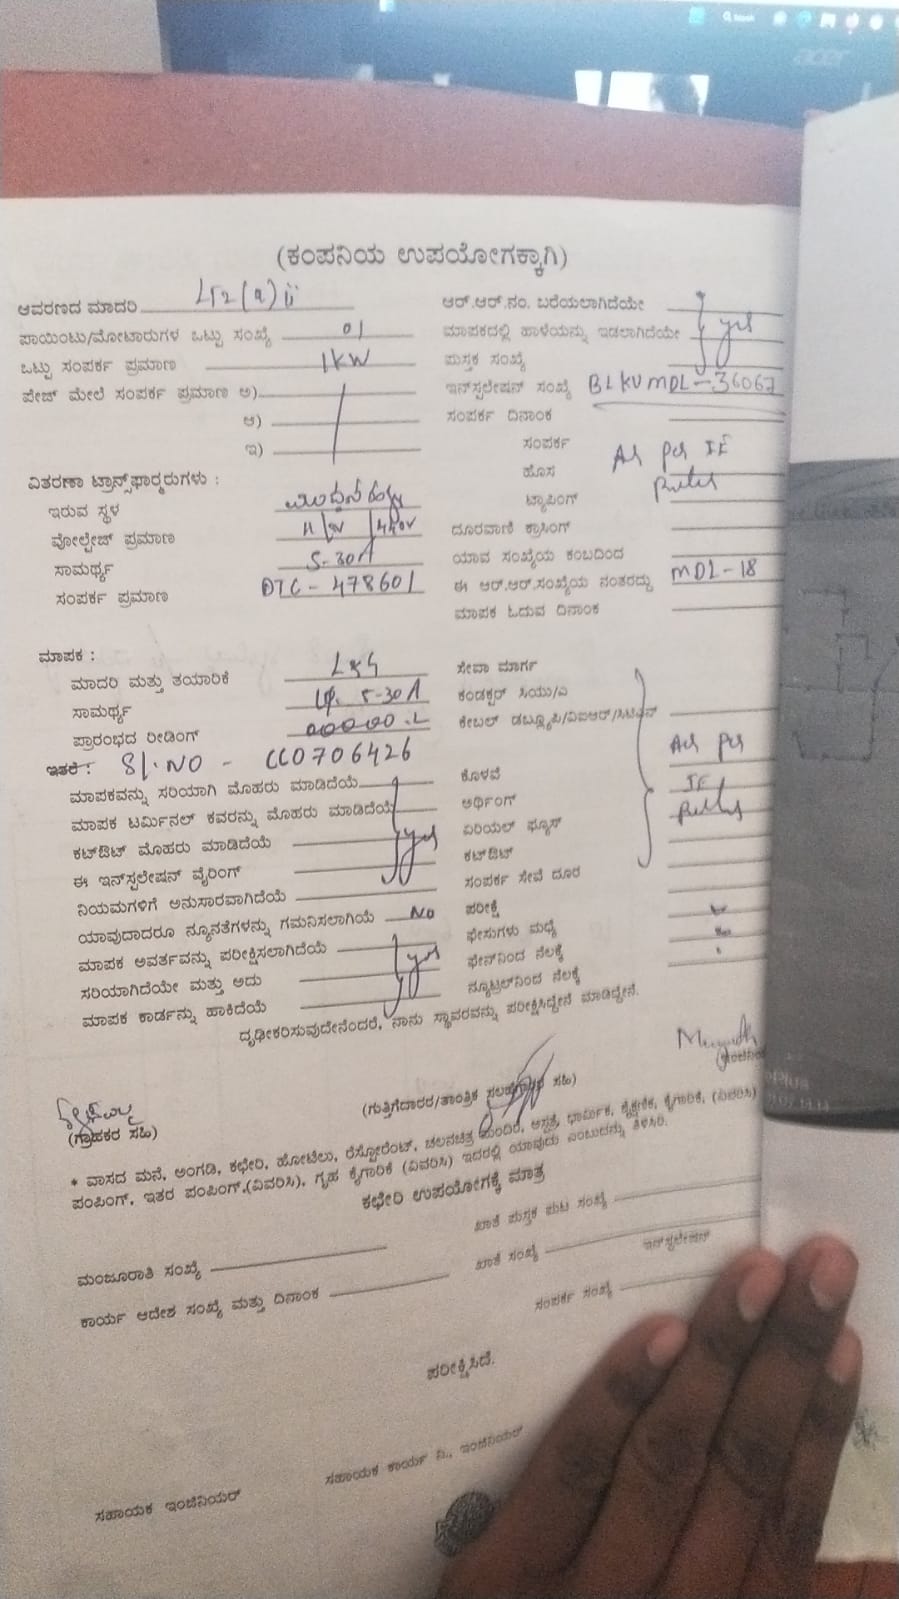 Search
acer
(ಕಂಪನಿಯ ಉಪಯೋಗಕ್ಕಾಗಿ)
ಆವರಣದ ಮಾದರಿ LT2(a)ii
ಪಾಯಿಂಟು/ಮೋಟಾರುಗಳ ಒಟ್ಟು ಸಂಖ್ಯೆ 01
ಒಟ್ಟು ಸಂಪರ್ಕ ಪ್ರಮಾಣ 1KW
ಪೇಜ್ ಮೇಲೆ ಸಂಪರ್ಕ ಪ್ರಮಾಣ ಅ)
ಆ)
ಇ)
ವಿತರಣಾ ಟ್ರಾನ್ಸ್‌ಫಾರ್ಮರುಗಳು :
ಇರುವ ಸ್ಥಳ
ವೋಲ್ಟೇಜ್ ಪ್ರಮಾಣ
ಸಾಮರ್ಥ್ಯ 5-30A
ಸಂಪರ್ಕ ಪ್ರಮಾಣ DTC-478601
ಆರ್.ಆರ್.ನಂ. ಬರೆಯಲಾಗಿದೆಯೇ
ಮಾಪಕದಲ್ಲಿ ಹಾಳೆಯನ್ನು ಇಡಲಾಗಿದೆಯೇ yes
ಪುಸ್ತಕ ಸಂಖ್ಯೆ
ಇನ್‌ಸ್ಟಲೇಷನ್ ಸಂಖ್ಯೆ BLKUMDL-36067
ಸಂಪರ್ಕ ದಿನಾಂಕ
ಸಂಪರ್ಕ As per IE
ಹೊಸ Rules
ಟ್ಯಾಪಿಂಗ್
ದೂರವಾಣಿ ಕ್ರಾಸಿಂಗ್
ಯಾವ ಸಂಖ್ಯೆಯ ಕಂಬದಿಂದ
ಈ ಆರ್.ಆರ್.ಸಂಖ್ಯೆಯ ನಂತರದ್ದು MDL-18
ಮಾಪಕ ಓದುವ ದಿನಾಂಕ
ಮಾಪಕ :
ಮಾದರಿ ಮತ್ತು ತಯಾರಿಕೆ L&G
ಸಾಮರ್ಥ್ಯ 5-30A
ಪ್ರಾರಂಭದ ರೀಡಿಂಗ್
ಇತರೆ : Sl.NO - CC0706426
ಮಾಪಕವನ್ನು ಸರಿಯಾಗಿ ಮೊಹರು ಮಾಡಿದೆಯೆ
ಮಾಪಕ ಟರ್ಮಿನಲ್ ಕವರನ್ನು ಮೊಹರು ಮಾಡಿದೆಯೆ
ಕಟ್‌ಔಟ್ ಮೊಹರು ಮಾಡಿದೆಯೆ yes
ಈ ಇನ್‌ಸ್ಟಲೇಷನ್ ವೈರಿಂಗ್
ನಿಯಮಗಳಿಗೆ ಅನುಸಾರವಾಗಿದೆಯೆ
ಯಾವುದಾದರೂ ನ್ಯೂನತೆಗಳನ್ನು ಗಮನಿಸಲಾಗಿಯೆ No
ಮಾಪಕ ಅವರ್ತವನ್ನು ಪರೀಕ್ಷಿಸಲಾಗಿದೆಯೆ
ಸರಿಯಾಗಿದೆಯೇ ಮತ್ತು ಅದು yes
ಮಾಪಕ ಕಾರ್ಡನ್ನು ಹಾಕಿದೆಯೆ
ಸೇವಾ ಮಾರ್ಗ
ಕಂಡಕ್ಟರ್ ಸಿಯು/ಎ
ಕೇಬಲ್ ಡಬ್ಲ್ಯೂಪಿ/ವಿಐಆರ್/ಸಿಟಿಎಸ್
As per
ಕೊಳವೆ IE
ಅರ್ಥಿಂಗ್ Rules
ಏರಿಯಲ್ ಫ್ಯೂಸ್
ಕಟ್‌ಔಟ್
ಸಂಪರ್ಕ ಸೇವೆ ದೂರ
ಪರೀಕ್ಷೆ
ಫೇಸುಗಳು ಮಧ್ಯೆ
ಫೇಸ್‌ನಿಂದ ನೆಲಕ್ಕೆ
ನ್ಯೂಟ್ರಲ್‌ನಿಂದ ನೆಲಕ್ಕೆ
ದೃಢೀಕರಿಸುವುದೇನೆಂದರೆ, ನಾನು ಸ್ಥಾವರವನ್ನು ಪರೀಕ್ಷಿಸಿದ್ದೇನೆ ಮಾಡಿದ್ದೇನೆ.
(ಗ್ರಾಹಕರ ಸಹಿ)
(ಗುತ್ತಿಗೆದಾರರ/ತಾಂತ್ರಿಕ ಸಲಹೆಗಾರರ ಸಹಿ)
* ವಾಸದ ಮನೆ, ಅಂಗಡಿ, ಕಛೇರಿ, ಹೋಟೆಲು, ರೆಸ್ಟೋರೆಂಟ್, ಚಲನಚಿತ್ರ ಮಂದಿರ, ಆಸ್ಪತ್ರೆ, ಧಾರ್ಮಿಕ, ಶೈಕ್ಷಣಿಕ, ಕೈಗಾರಿಕೆ, (ವಿವರಿಸಿ)
ಪಂಪಿಂಗ್, ಇತರ ಪಂಪಿಂಗ್,(ವಿವರಿಸಿ), ಗೃಹ ಕೈಗಾರಿಕೆ (ವಿವರಿಸಿ) ಇದರಲ್ಲಿ ಯಾವುದು ಎಂಬುದನ್ನು ತಿಳಿಸಿರಿ.
ಕಛೇರಿ ಉಪಯೋಗಕ್ಕೆ ಮಾತ್ರ
ಖಾತೆ ಪುಸ್ತಕ ಪುಟ ಸಂಖ್ಯೆ
ಮಂಜೂರಾತಿ ಸಂಖ್ಯೆ
ಖಾತೆ ಸಂಖ್ಯೆ
ಇನ್‌ಸ್ಟಲೇಷನ್
ಕಾರ್ಯ ಆದೇಶ ಸಂಖ್ಯೆ ಮತ್ತು ದಿನಾಂಕ
ಸಂಪರ್ಕ ಸಂಖ್ಯೆ
ಪರೀಕ್ಷಿಸಿದೆ.
ಸಹಾಯಕ ಇಂಜಿನಿಯರ್
ಸಹಾಯಕ ಕಾರ್ಯ ನಿ., ಇಂಜಿನಿಯರ್